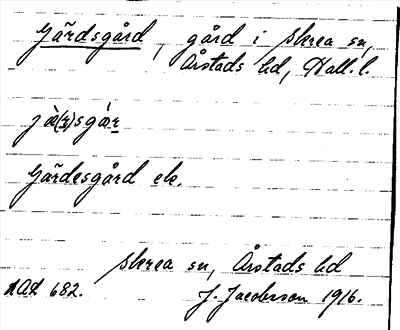 Gärdsgård, gård i Skrea sn,
Årstads hd, Hall. l.
jä̀(r)sgår
Gärdesgård ek.
Skrea sn, Årstads hd
682. J. Jacobsson 1916.